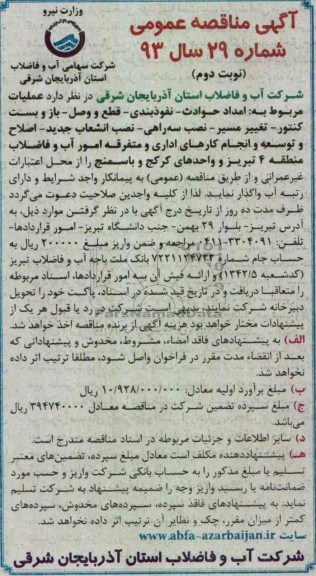 وزارت نیرو
شرکت سهامی آب و فاضلاب
استان آذربایجان شرقی
آگهی مناقصه عمومی
شماره ۲۹ سال ۹۳
(نوبت دوم)
شرکت آب و فاضلاب استان آذربایجان شرقی در نظر دارد عملیات
مربوط به: امداد حوادث- نفوذبندی- قطع و وصل- باز و بست
کنتور- تغییر مسیر- نصب سه‌راهی- نصب انشعاب جدید- اصلاح
و توسعه و انجام کارهای اداری و متفرقه امور آب و فاضلاب
منطقه ۴ تبریز و واحدهای کرکج و باسمنج را از محل اعتبارات
غیرعمرانی و از طریق مناقصه (عمومی) به پیمانکار واجد شرایط و دارای
رتبه آب واگذار نماید. لذا از کلیه واجدین صلاحیت دعوت می‌گردد
ظرف مدت ده روز از تاریخ درج آگهی با در نظر گرفتن موارد ذیل، به
آدرس تبریز- بلوار ۲۹ بهمن- جنب دانشگاه تبریز- امور قراردادها-
تلفن: ۳۳۰۴۰۹۱-۰۴۱۱ مراجعه و ضمن واریز مبلغ ۲۰۰۰۰۰ ریال به
حساب جام شماره ۷۲۲۱۱۲۴۷۳۳ بانک ملت باجه آب و فاضلاب تبریز
(کدشعبه ۱۳۴۲/۵) و ارائه فیش آن به امور قراردادها، اسناد مربوطه
را متعاقبا دریافت و در تاریخ قید شده در اسناد، پاکت خود را تحویل
دبیرخانه شرکت نمایند. بدیهی است شرکت در رد یا قبول هر یک از
پیشنهادات مختار خواهد بود هزینه آگهی از برنده مناقصه اخذ خواهد شد.
الف) به پیشنهادهای فاقد امضاء، مشروط، مخدوش و پیشنهاداتی که
بعد از انقضاء مدت مقرر در فراخوان واصل شود، مطلقا ترتیب اثر داده
نخواهد شد.
ب) مبلغ برآورد اولیه معادل: ۱۰/۹۲۸/۰۰۰/۰۰۰ ریال
ج) مبلغ سپرده تضمین شرکت در مناقصه معادل ۳۹۴۷۴۰۰۰۰ ریال
می‌باشد.
د) سایر اطلاعات و جزئیات مربوطه در اسناد مناقصه مندرج است.
هـ) پیشنهاددهنده مکلف است معادل مبلغ سپرده، تضمین‌های معتبر
تسلیم یا مبلغ مذکور را به حساب بانکی شرکت واریز و حسب مورد
ضمانت‌نامه یا رسید واریز وجه را ضمیمه پیشنهاد به شرکت تسلیم
نماید، به پیشنهادهای فاقد سپرده، سپرده‌های مخدوش، سپرده‌های
کمتر از میزان مقرر، چک و نظایر آن ترتیب اثر داده نخواهد شد.
سایت www.abfa-azarbaijan.ir
شرکت آب و فاضلاب استان آذربایجان شرقی